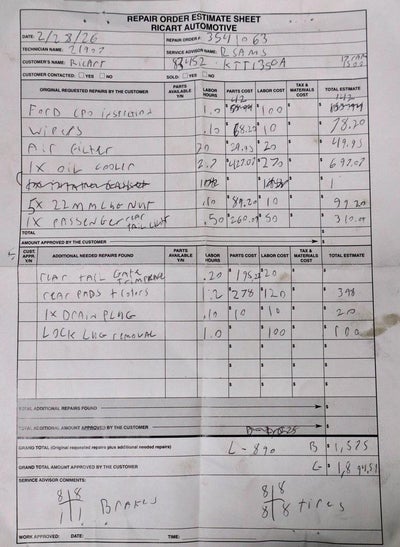 REPAIR ORDER ESTIMATE SHEET
RICART AUTOMOTIVE
DATE: 2/28/26 REPAIR ORDER #: 3541063
TECHNICIAN NAME: 21907 SERVICE ADVISOR NAME: R SAMS
CUSTOMER'S NAME: RICART 83452 KTT1350A
CUSTOMER CONTACTED: YES NO SOLD: YES NO
ORIGINAL REQUESTED REPAIRS BY THE CUSTOMER PARTS AVAILABLE Y/N LABOR HOURS PARTS COST LABOR COST TAX & MATERIALS COST TOTAL ESTIMATE
FORD CPO INSPECTION 1.0 $ 42 $ 100 $ $ 142
WIPERS .10 $ 68.20 $ 10 $ $ 78.20
AIR FILTER 20 $ 29.95 $ 20 $ $ 49.95
1X OIL COOLER 2.7 $ 427.07 $ 270 $ $ 697.07
5X 22MM LUG NUT .10 $ 89.20 $ 10 $ $ 99.20
1X PASSENGER REAR TAIL LIGHT .50 $ 260.00 $ 50 $ $ 310.00
TOTAL
AMOUNT APPROVED BY THE CUSTOMER
CUST. APPR. Y/N ADDITIONAL NEEDED REPAIRS FOUND PARTS AVAILABLE Y/N LABOR HOURS PARTS COST LABOR COST TAX & MATERIALS COST TOTAL ESTIMATE
REAR TAIL GATE TRIM PANEL .20 $ $ 20 $ $
REAR PADS + ROTORS 1.2 $ 278 $ 120 $ $ 398
1X DRAIN PLUG .10 $ 10 $ 10 $ $ 20
LOCK LUG REMOVAL 1.0 $ $ 100 $ $ 100
TOTAL ADDITIONAL REPAIRS FOUND $
TOTAL ADDITIONAL AMOUNT APPROVED BY THE CUSTOMER $
GRAND TOTAL (Original requested repairs plus additional needed repairs) L-890 B $ 1,525
GRAND TOTAL AMOUNT APPROVED BY THE CUSTOMER G $
SERVICE ADVISOR COMMENTS:
8 8 8 8
1 1 BRAKES 8 8 TIRES
WORK APPROVED: DATE: TIME: